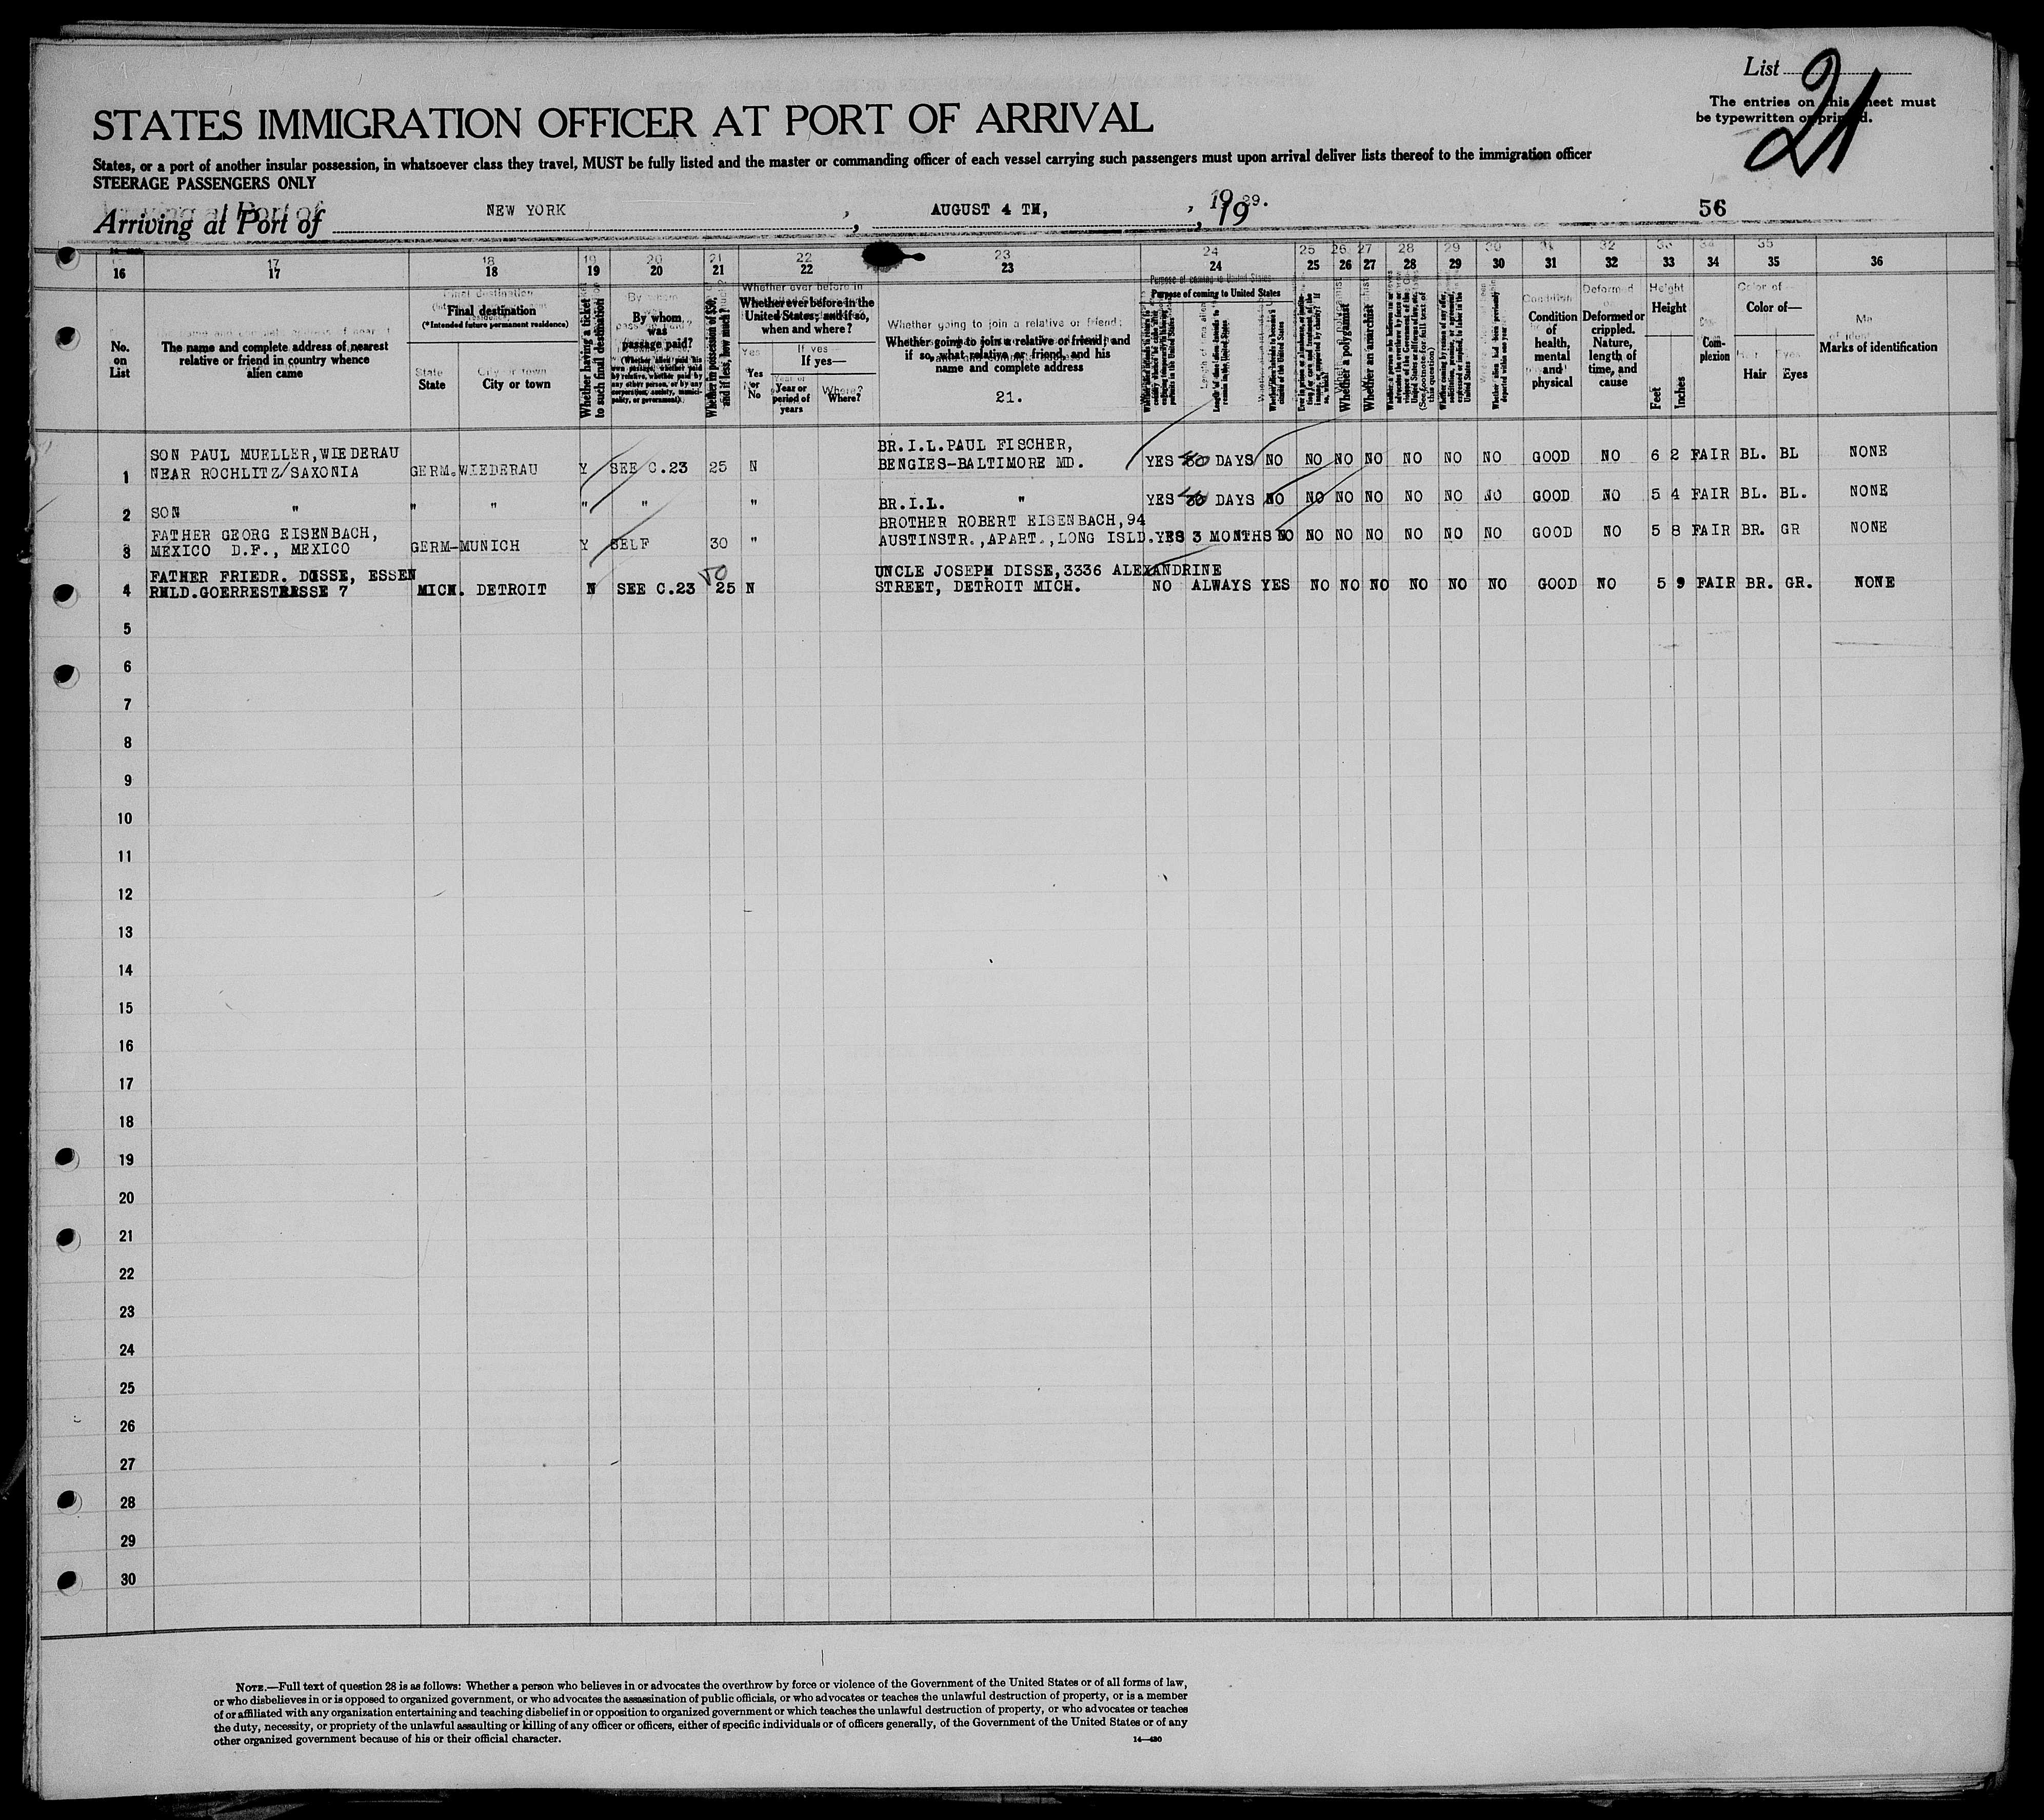 List 21
The entries on this sheet must
be typewritten or printed.
STATES IMMIGRATION OFFICER AT PORT OF ARRIVAL
States, or a port of another insular possession, in whatsoever class they travel, MUST be fully listed and the master or commanding officer of each vessel carrying such passengers must upon arrival deliver lists thereof to the immigration officer
STEERAGE PASSENGERS ONLY
Arriving at Port of NEW YORK, AUGUST 4 TH, 1929. 56
16 17 18 19 20 21 22 23 24 25 26 27 28 29 30 31 32 33 34 35 36
No. on List
The name and complete address of nearest relative or friend in country whence alien came
Final destination
(*Intended future permanent residence)
State
City or town
Whether having a ticket to such final destination
By whom was passage paid?
(Whether alien paid his own passage, whether paid by relative, whether paid by any other person, or by any corporation, society, municipality, or government)
Whether in possession of $50, and if less, how much?
Whether ever before in the United States; and if so, when and where?
Yes or No
If yes—
Year or period of years
Where?
Whether going to join a relative or friend; and if so, what relative or friend, and his name and complete address
21.
Purpose of coming to United States
Whether a polygamist
Whether an anarchist
(See footnote for full text of this question)
Condition of health, mental and physical
Deformed or crippled. Nature, length of time, and cause
Height
Feet
Inches
Complexion
Color of—
Hair
Eyes
Marks of identification
SON PAUL MUELLER,WIEDERAU BR.I.L.PAUL FISCHER,
1 NEAR ROCHLITZ/SAXONIA GERM. WIEDERAU Y SEE C.23 25 N BENGIES-BALTIMORE MD. YES 60 DAYS NO NO NO NO NO NO NO GOOD NO 6 2 FAIR BL. BL NONE
2 SON " " " " " " BR.I.L. " YES 60 DAYS NO NO NO NO NO NO NO GOOD NO 5 4 FAIR BL. BL. NONE
FATHER GEORG EISENBACH, BROTHER ROBERT EISENBACH,94
3 MEXICO D.F., MEXICO GERM-MUNICH Y SELF 30 " AUSTINSTR.,APART.,LONG ISLD. YES 3 MONTHS NO NO NO NO NO NO NO GOOD NO 5 8 FAIR BR. GR NONE
FATHER FRIEDR. DISSE, ESSEN 50 UNCLE JOSEPH DISSE,3336 ALEXANDRINE
4 RHLD.GOERRESTRASSE 7 MICH. DETROIT N SEE C.23 25 N STREET, DETROIT MICH. NO ALWAYS YES NO NO NO NO NO NO GOOD NO 5 9 FAIR BR. GR. NONE
5
6
7
8
9
10
11
12
13
14
15
16
17
18
19
20
21
22
23
24
25
26
27
28
29
30
NOTE.—Full text of question 28 is as follows: Whether a person who believes in or advocates the overthrow by force or violence of the Government of the United States or of all forms of law,
or who disbelieves in or is opposed to organized government, or who advocates the assassination of public officials, or who advocates or teaches the unlawful destruction of property, or is a member
of or affiliated with any organization entertaining and teaching disbelief in or opposition to organized government or which teaches the unlawful destruction of property, or who advocates or teaches
the duty, necessity, or propriety of the unlawful assaulting or killing of any officer or officers, either of specific individuals or of officers generally, of the Government of the United States or of any
other organized government because of his or their official character. 14—480